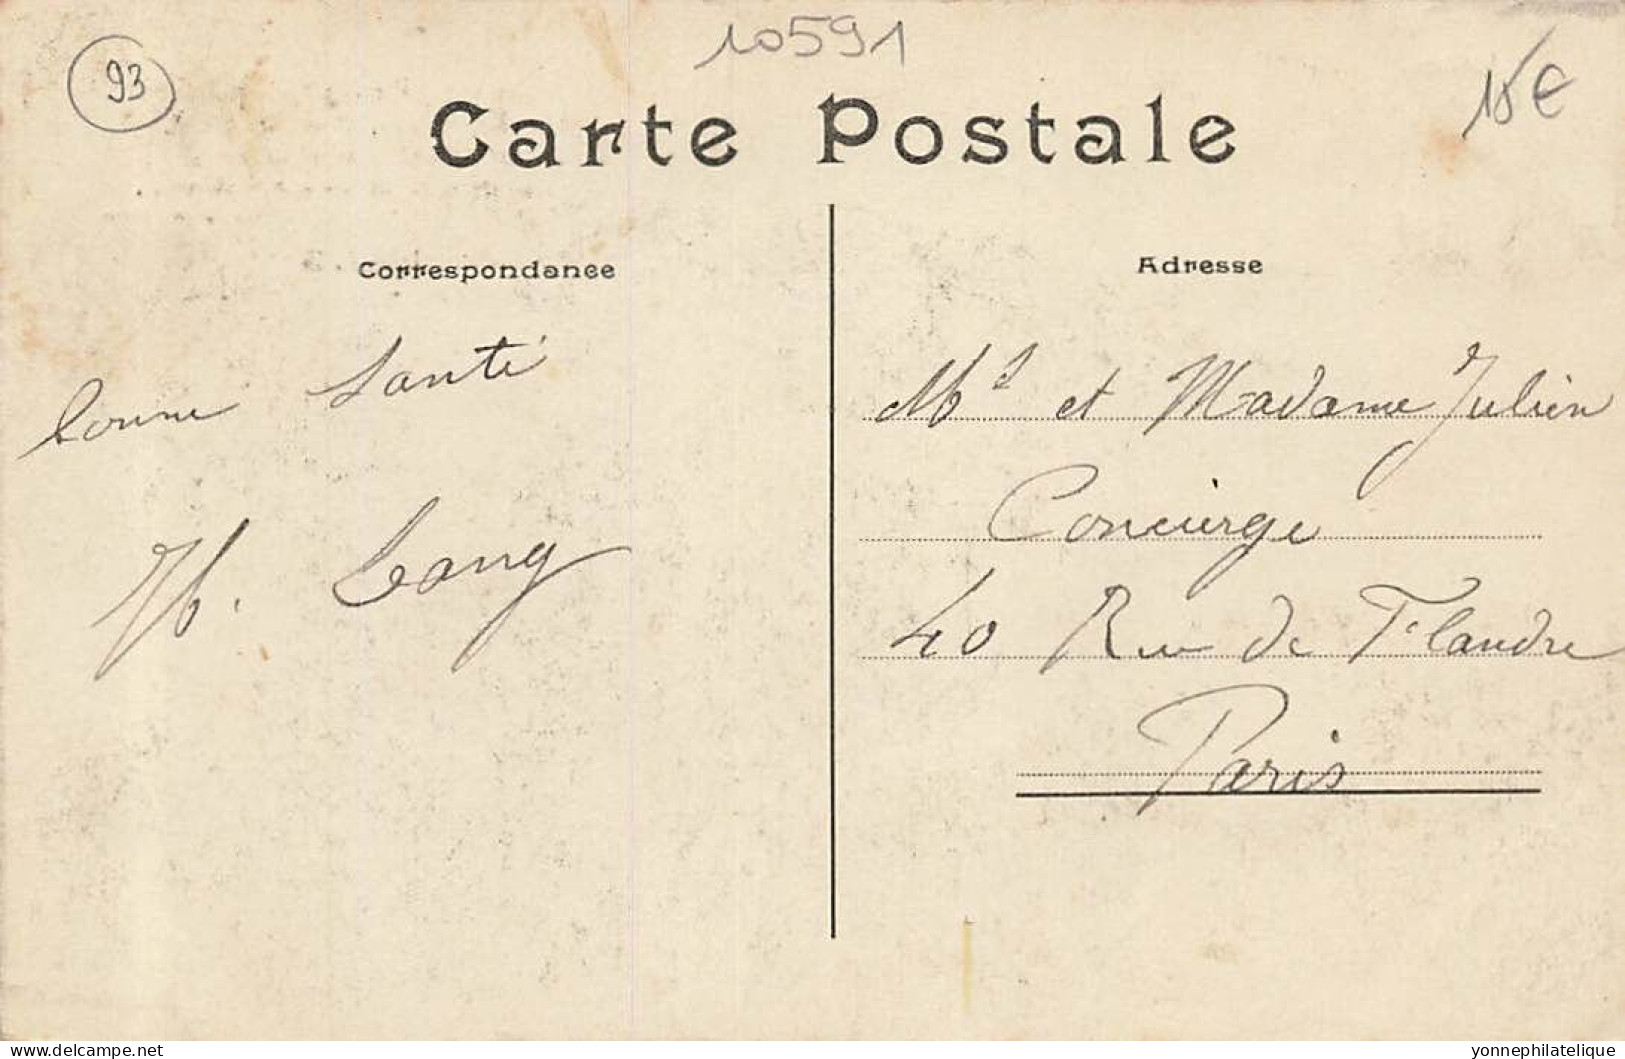 10591
93
15€
Carte Postale
Correspondance
Adresse
bonne Santé
Lang
Mr et Madame Julien
Concierge
40 Rue de Flandre
Paris
www.delcampe.net
yonnephilatelique